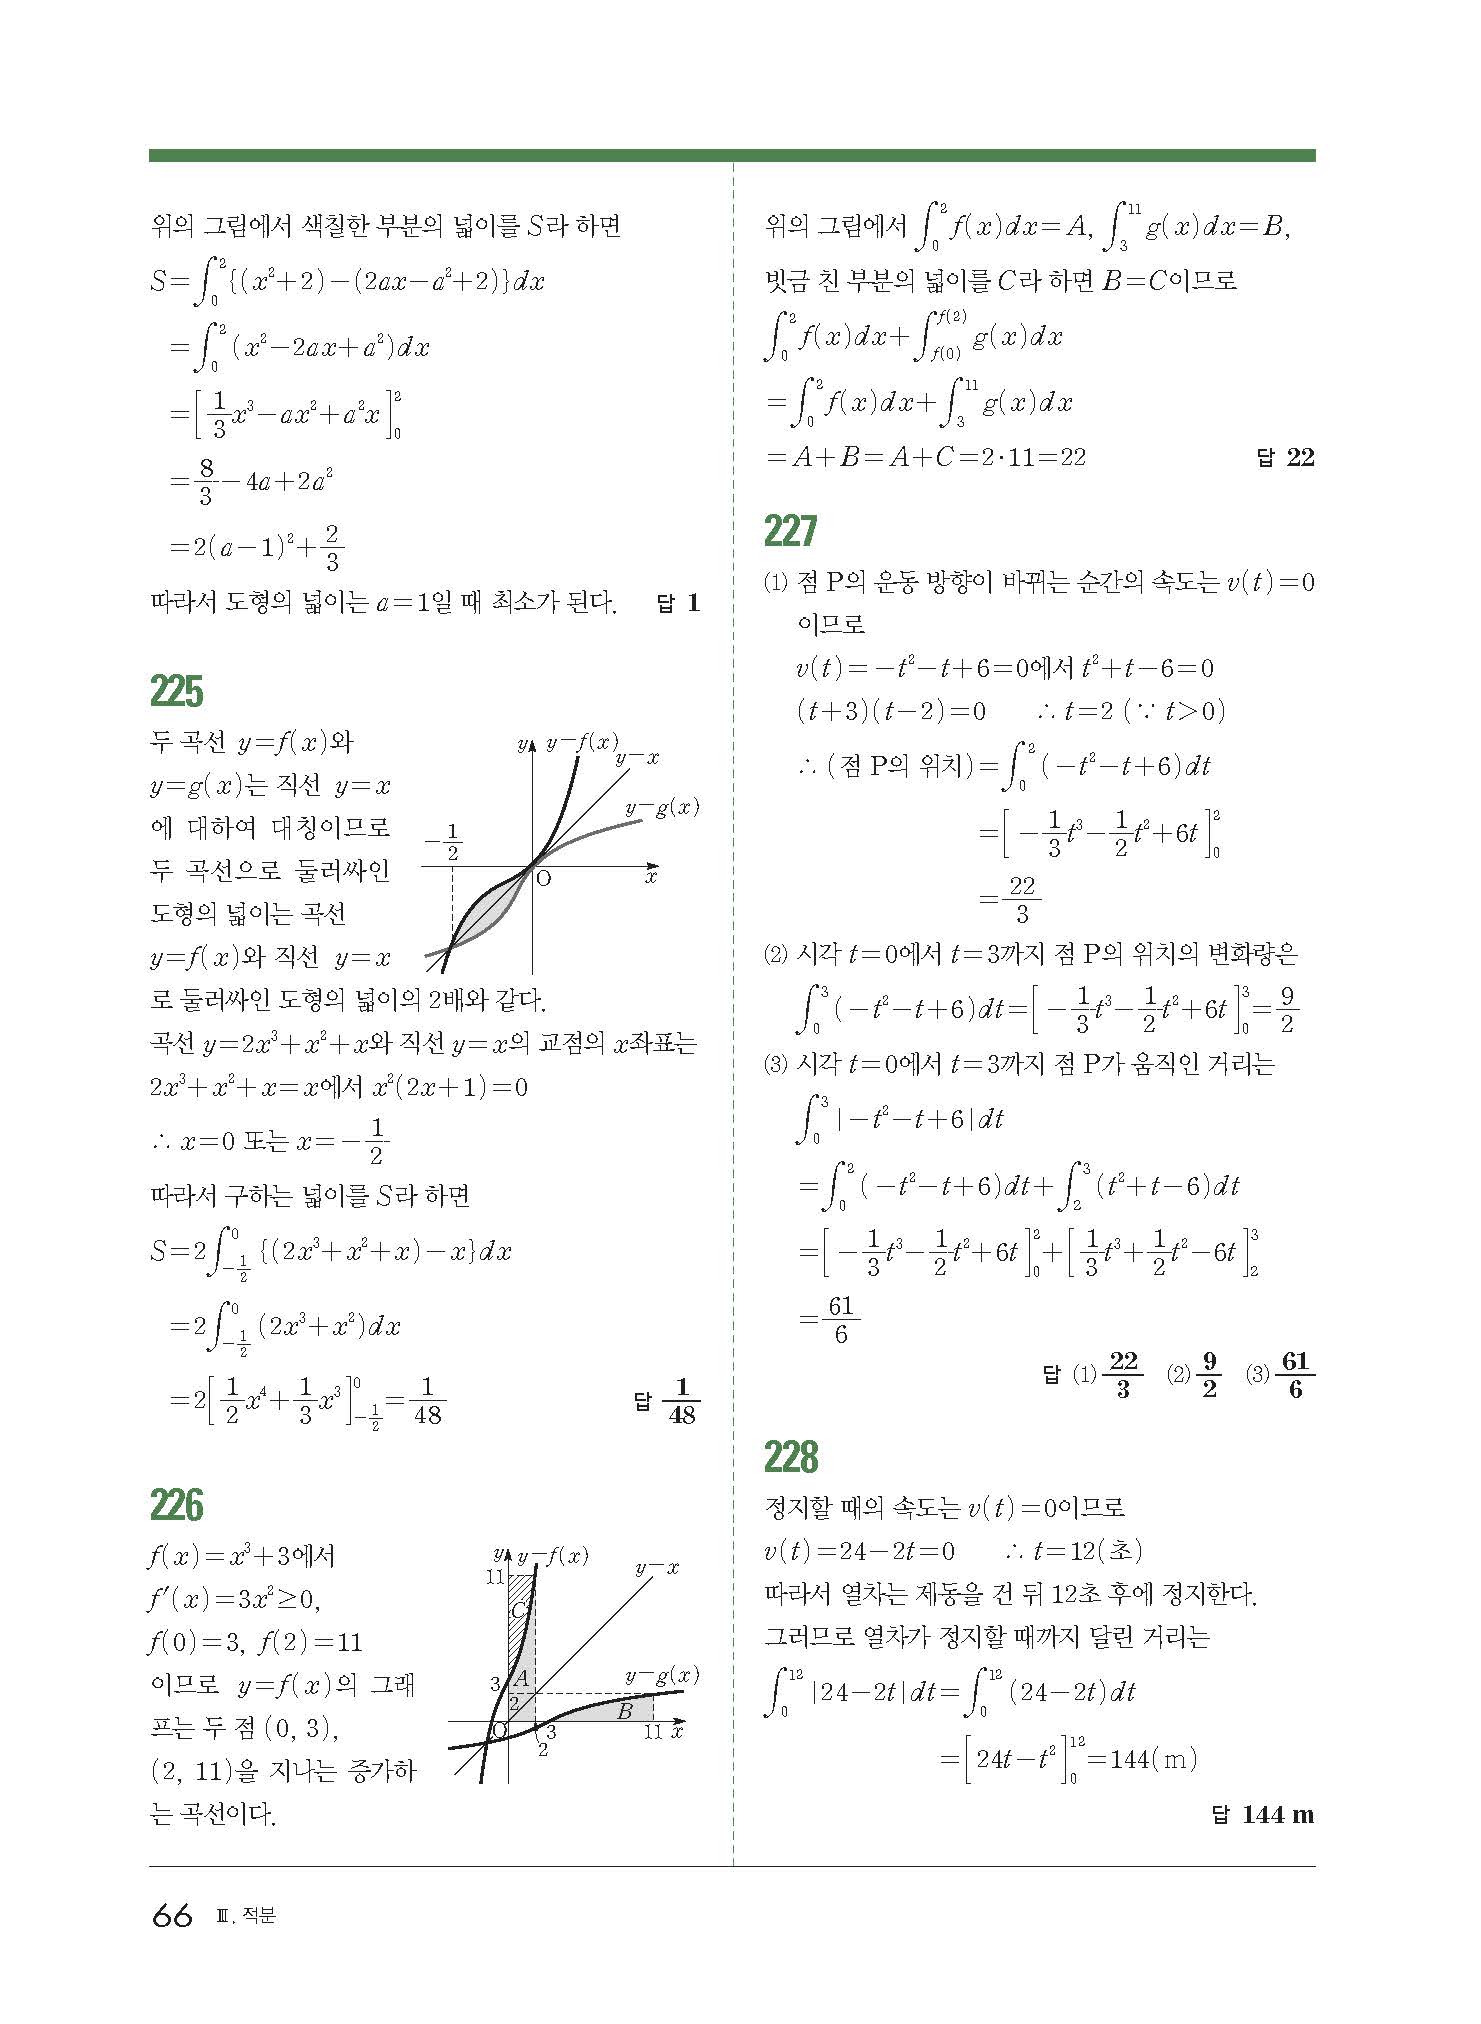 위의 그림에서 색칠한 부분의 넓이를 S라 하면
S=∫_0^2 {(x²+2)-(2ax-a²+2)}dx
=∫_0^2 (x²-2ax+a²)dx
=[1/3 x³-ax²+a²x]_0^2
=8/3-4a+2a²
=2(a-1)²+2/3
따라서 도형의 넓이는 a=1일 때 최소가 된다. 답 1
225
두 곡선 y=f(x)와
y=g(x)는 직선 y=x
에 대하여 대칭이므로
두 곡선으로 둘러싸인
도형의 넓이는 곡선
y=f(x)와 직선 y=x
로 둘러싸인 도형의 넓이의 2배와 같다.
y y=f(x)
y=x
y=g(x)
-1/2
O x
곡선 y=2x³+x²+x와 직선 y=x의 교점의 x좌표는
2x³+x²+x=x에서 x²(2x+1)=0
∴ x=0 또는 x=-1/2
따라서 구하는 넓이를 S라 하면
S=2∫_{-1/2}^0 {(2x³+x²+x)-x}dx
=2∫_{-1/2}^0 (2x³+x²)dx
=2[1/2 x⁴+1/3 x³]_{-1/2}^0=1/48 답 1/48
226
f(x)=x³+3에서
f′(x)=3x²≥0,
f(0)=3, f(2)=11
이므로 y=f(x)의 그래
프는 두 점 (0, 3),
(2, 11)을 지나는 증가하
는 곡선이다.
y y=f(x)
11 y=x
C
3 A y=g(x)
2 B
O 3 11 x
2
위의 그림에서 ∫_0^2 f(x)dx=A, ∫_3^11 g(x)dx=B,
빗금 친 부분의 넓이를 C라 하면 B=C이므로
∫_0^2 f(x)dx+∫_{f(0)}^{f(2)} g(x)dx
=∫_0^2 f(x)dx+∫_3^11 g(x)dx
=A+B=A+C=2·11=22 답 22
227
⑴ 점 P의 운동 방향이 바뀌는 순간의 속도는 v(t)=0
이므로
v(t)=-t²-t+6=0에서 t²+t-6=0
(t+3)(t-2)=0 ∴ t=2 (∵ t>0)
∴ (점 P의 위치)=∫_0^2 (-t²-t+6)dt
=[-1/3 t³-1/2 t²+6t]_0^2
=22/3
⑵ 시각 t=0에서 t=3까지 점 P의 위치의 변화량은
∫_0^3 (-t²-t+6)dt=[-1/3 t³-1/2 t²+6t]_0^3=9/2
⑶ 시각 t=0에서 t=3까지 점 P가 움직인 거리는
∫_0^3 |-t²-t+6|dt
=∫_0^2 (-t²-t+6)dt+∫_2^3 (t²+t-6)dt
=[-1/3 t³-1/2 t²+6t]_0^2+[1/3 t³+1/2 t²-6t]_2^3
=61/6
답 ⑴ 22/3 ⑵ 9/2 ⑶ 61/6
228
정지할 때의 속도는 v(t)=0이므로
v(t)=24-2t=0 ∴ t=12(초)
따라서 열차는 제동을 건 뒤 12초 후에 정지한다.
그러므로 열차가 정지할 때까지 달린 거리는
∫_0^12 |24-2t|dt=∫_0^12 (24-2t)dt
=[24t-t²]_0^12=144(m)
답 144 m
66 Ⅲ. 적분